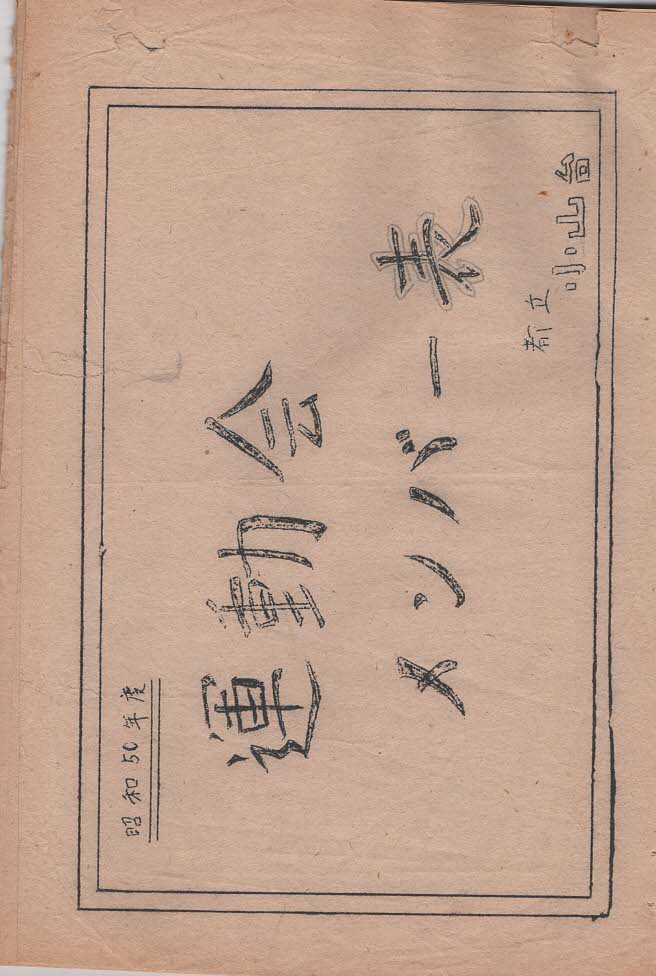 昭和50年度
運動会
メンバー表
都立
小山台